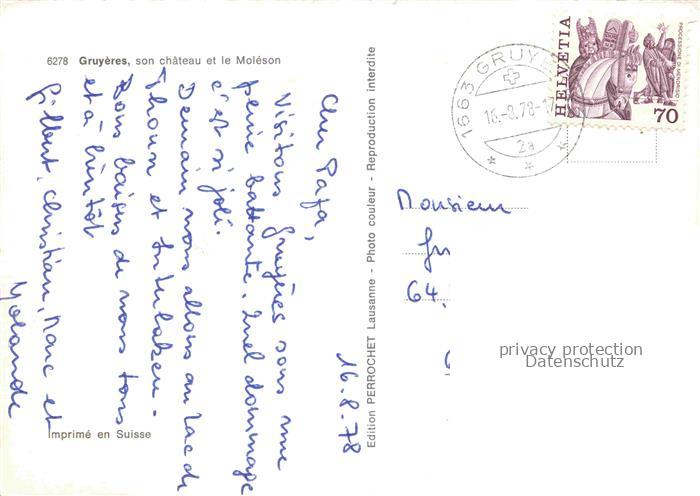 6278 Gruyères, son château et le Moléson
16.8.78
Cher Papa,
Visitons Gruyères sous une
peine battante. Quel dommage
c'est si joli.
Demain nous allons au Lac de
Thoun et Interlaken.
Bons baisers de nous tous
et à bientôt
Gilbert, Christian, Marc et
Yolande
Imprimé en Suisse
Edition PERROCHET Lausanne - Photo couleur - Reproduction interdite
1663 GRUYE
16.-8.78-17
2a
HELVETIA
PROCESSIONE DI MENDRISIO
70
Monsieur
64.
privacy protection
Datenschutz